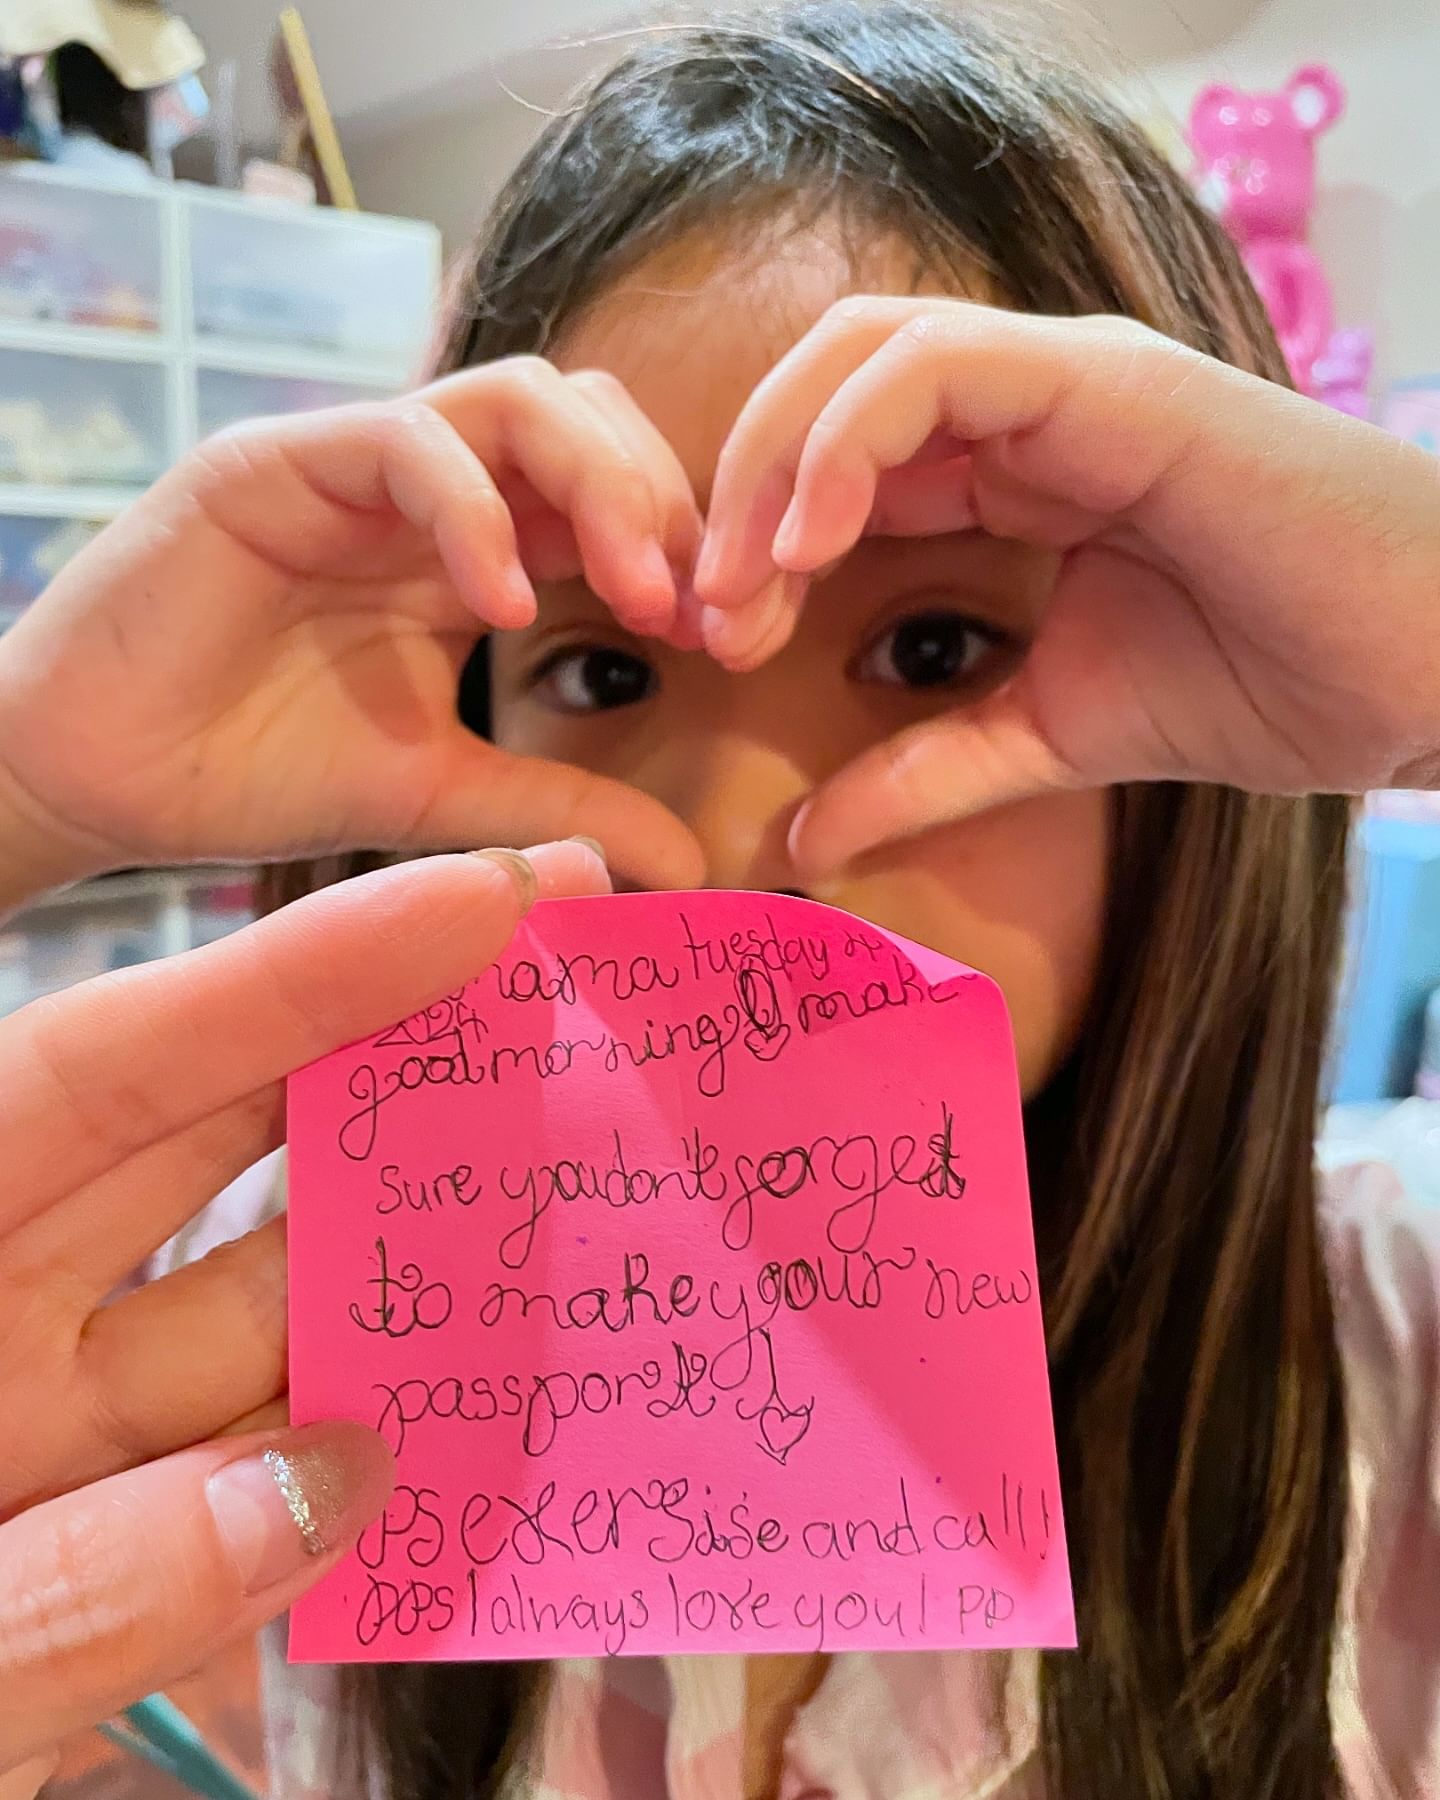 mama tuesday
2024
good morning! make
sure you don't forget
to make your new
passport!
PS exersise and call!
PPS I always love you! PP